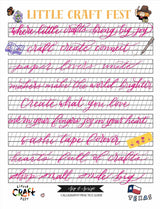 LITTLE CRAFT FEST
where little crafts bring big joy
craft create connect
paper love smile
makers make the world brighter
Create what you love
ink on your fingers joy in your heart
washi tape forever
hearts full of crafts
shop small smile big
LITTLE
CRAFT
FEST
TEXAS